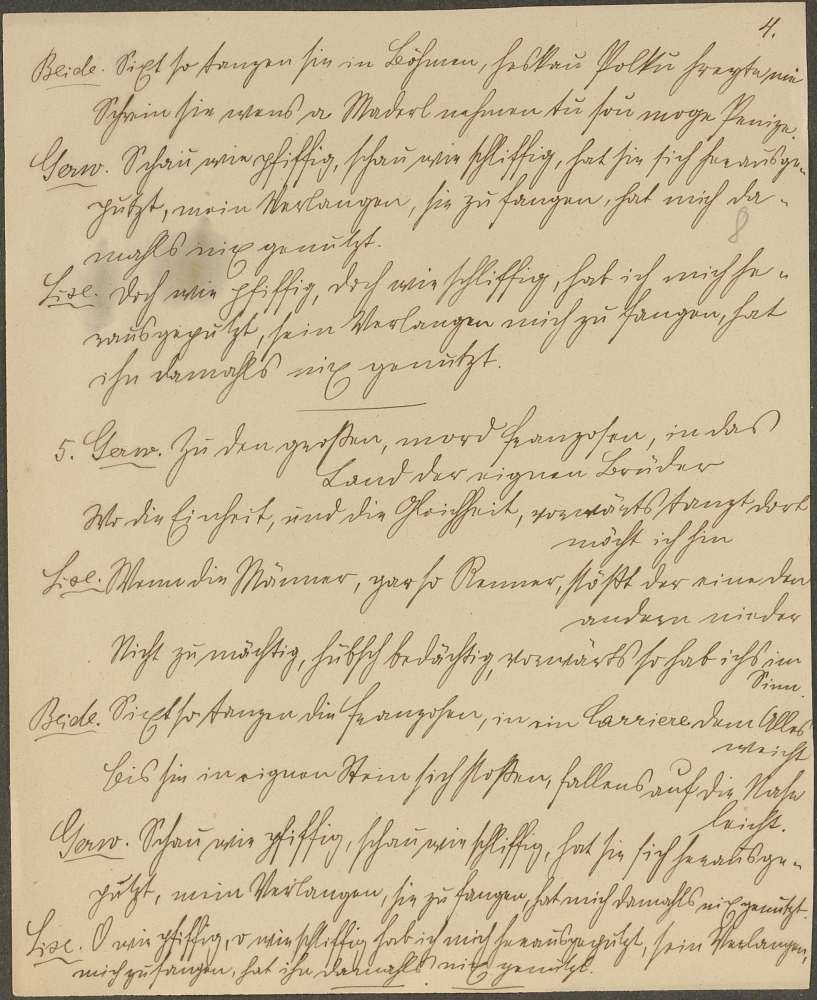 4.
Beide. Sixt so tanzen sie in Böhmen, heskau Polku
Schrein sie wens a Maderl nehmen tu sou moge Penize.
Gerw. Schau wie pfiffig, schau wie schliffig, hat sie sich herausge-
putzt, mein Verlangen, sie zu fangen, hat mich da-
mahls nix genützt.
8
Lisl. Doch wie pfiffig, doch wie schliffig, hab ich mich he-
rausgeputzt, sein Verlangen mich zu fangen, hat
ihn damahls nix genützt.
5. Gerw. Zu den großen, mord Franzosen, in das
Land der eignen Brüder
Wo die Einheit, und die Gleichheit, vorwärts tanzt dort
möcht ich hin
Lisl. Wenn die Männer, gar so Renner, stößt der eine den
andern nieder
Nicht zu mächtig, hübsch bedächtig, vorwärts so hab ichs im
Sinn.
Beide. Sixt so tanzen die Franzosen, in ein Carriere dem Alles
weicht
Bis sie in eignen Stein sich stoßen, fallens auf die Nase
leicht.
Gerw. Schau wie pfiffig, schau wie schliffig, hat sie sich herausge-
putzt, mein Verlangen, sie zu fangen, hat mich damahls nix genützt.
Lisl. O wie pfiffig, o wie schliffig hab ich mich herausgeputzt, sein Verlangen,
mich zu fangen, hat ihn damahls nix genützt.